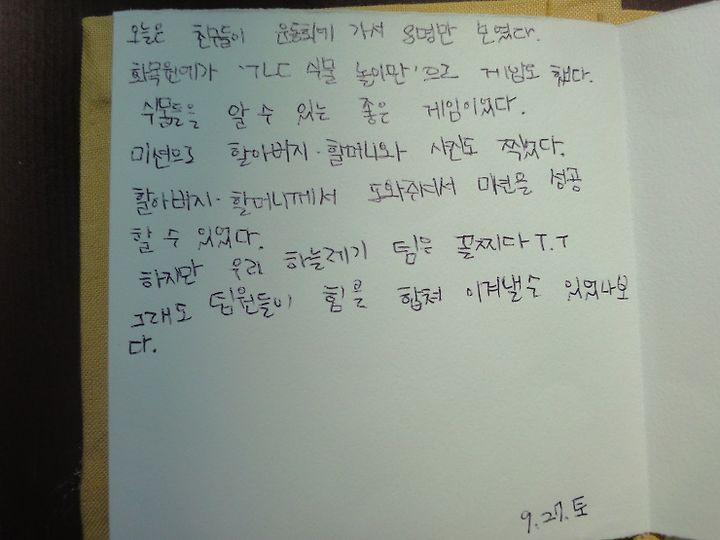 오늘은 친구들이 운동회에 가서 8명만 모였다.
화목원에가 'TLC 식물 놀이판'으로 게임도 했다.
식물들을 알 수 있는 좋은 게임이었다.
미션으로 할아버지·할머니와 사진도 찍었다.
할아버지·할머니께서 도와주셔서 미션을 성공
할 수 있었다.
하지만 우리 하늘레기 팀은 꼴찌다 T.T
그래도 팀원들이 힘을 합쳐 이겨낼수 있었나보
다.
9.27.토